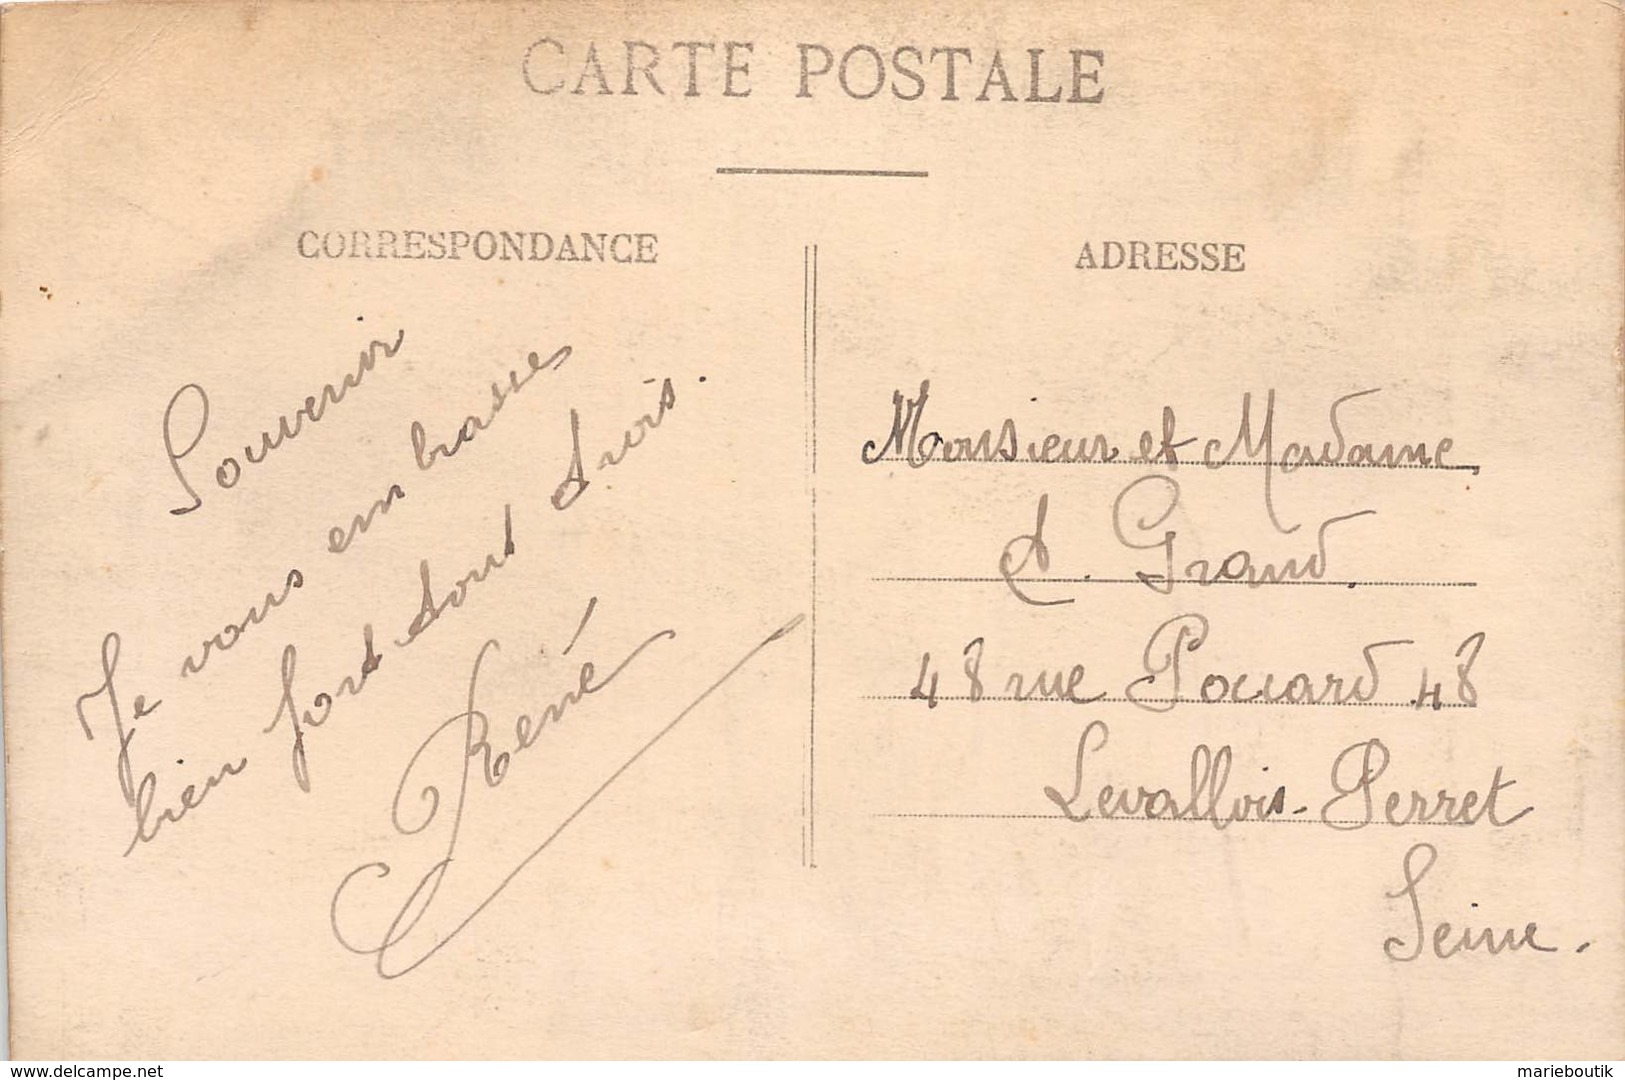 CARTE POSTALE
CORRESPONDANCE
Souvenir
Je vous embrasse
bien fort tous trois.
René
ADRESSE
Monsieur et Madame
A. Grand.
48 rue Pocard 48
Levallois-Perret
Seine.
delcampe.net
marieboutik